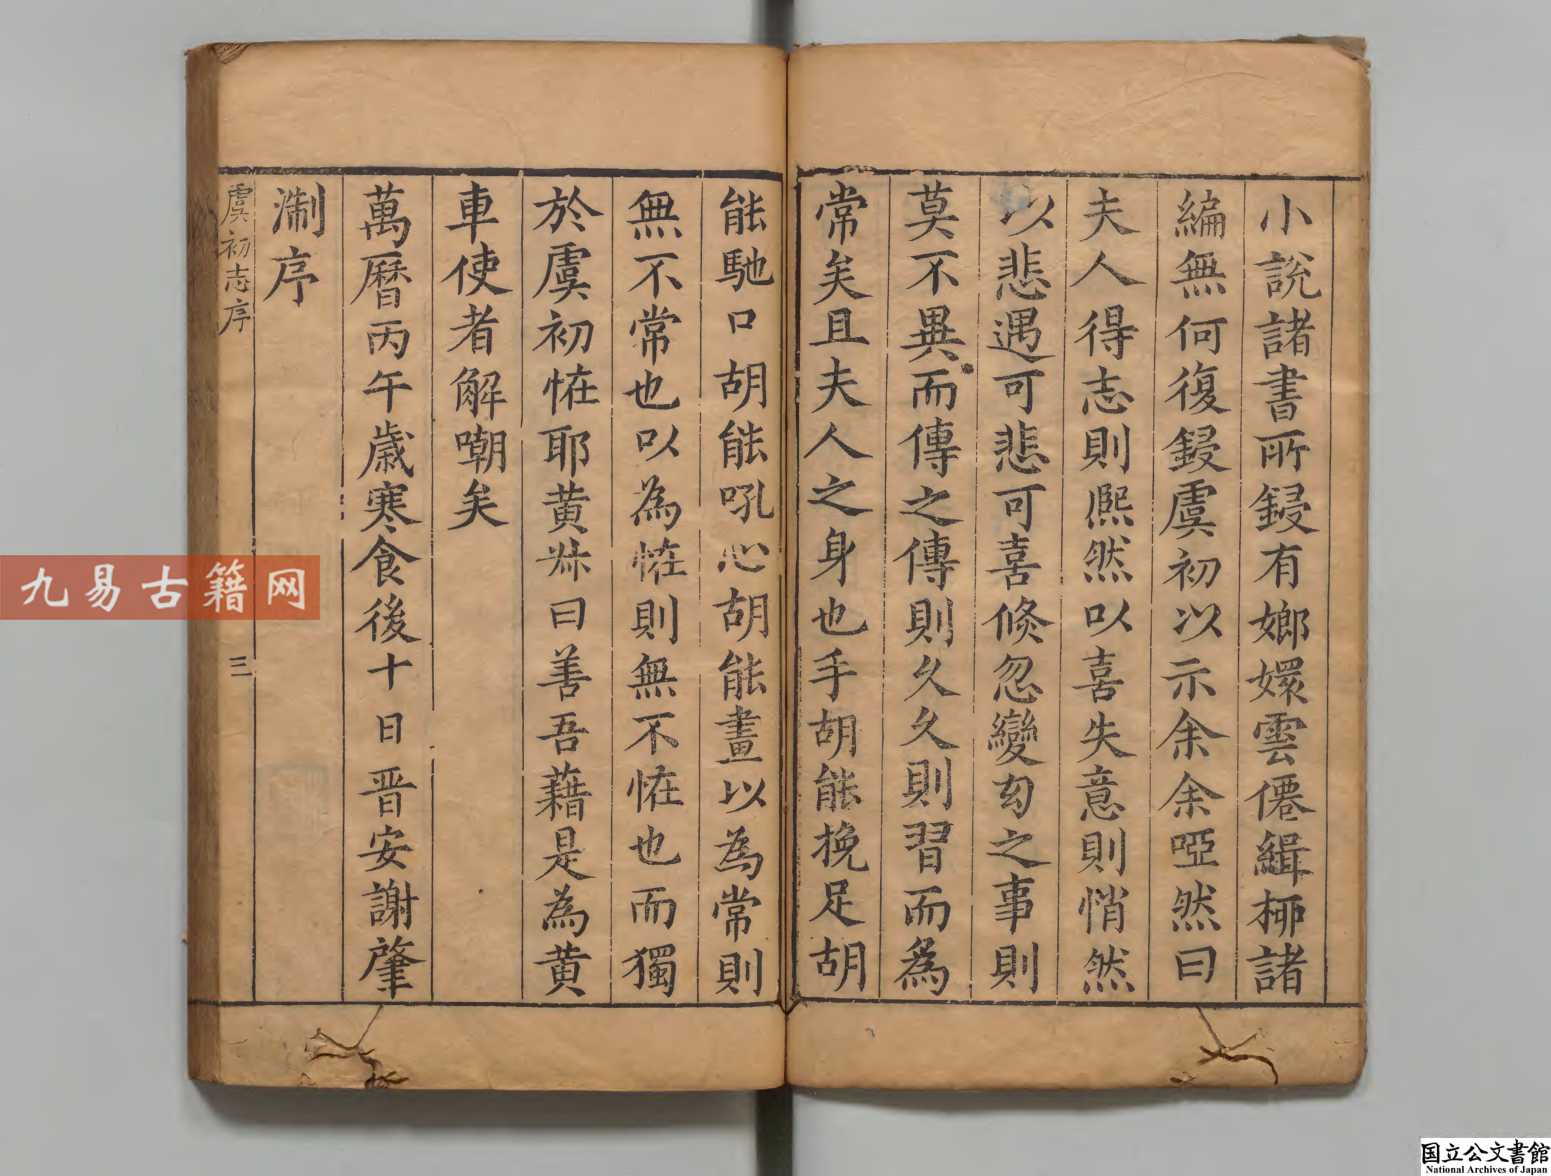 小說諸書所鋟有嫏嬛雲僊緝柳諸
編無何復鋟虞初以示余余啞然曰
夫人得志則熈然以喜失意則悄然
以悲遇可悲可喜倏忽變勾之事則
莫不異而傳之傳則久久則習而為
常矣且夫人之身也手胡能挽足胡
能馳口胡能吼心胡能畫以為常則
無不常也以為恠則無不恠也而獨
於虞初恠耶黄尗曰善吾藉是為黄
車使者解嘲矣
萬曆丙午歲寒食後十日晋安謝肇
淛序
虞初志序
三
九易古籍网
国立公文書館
National Archives of Japan